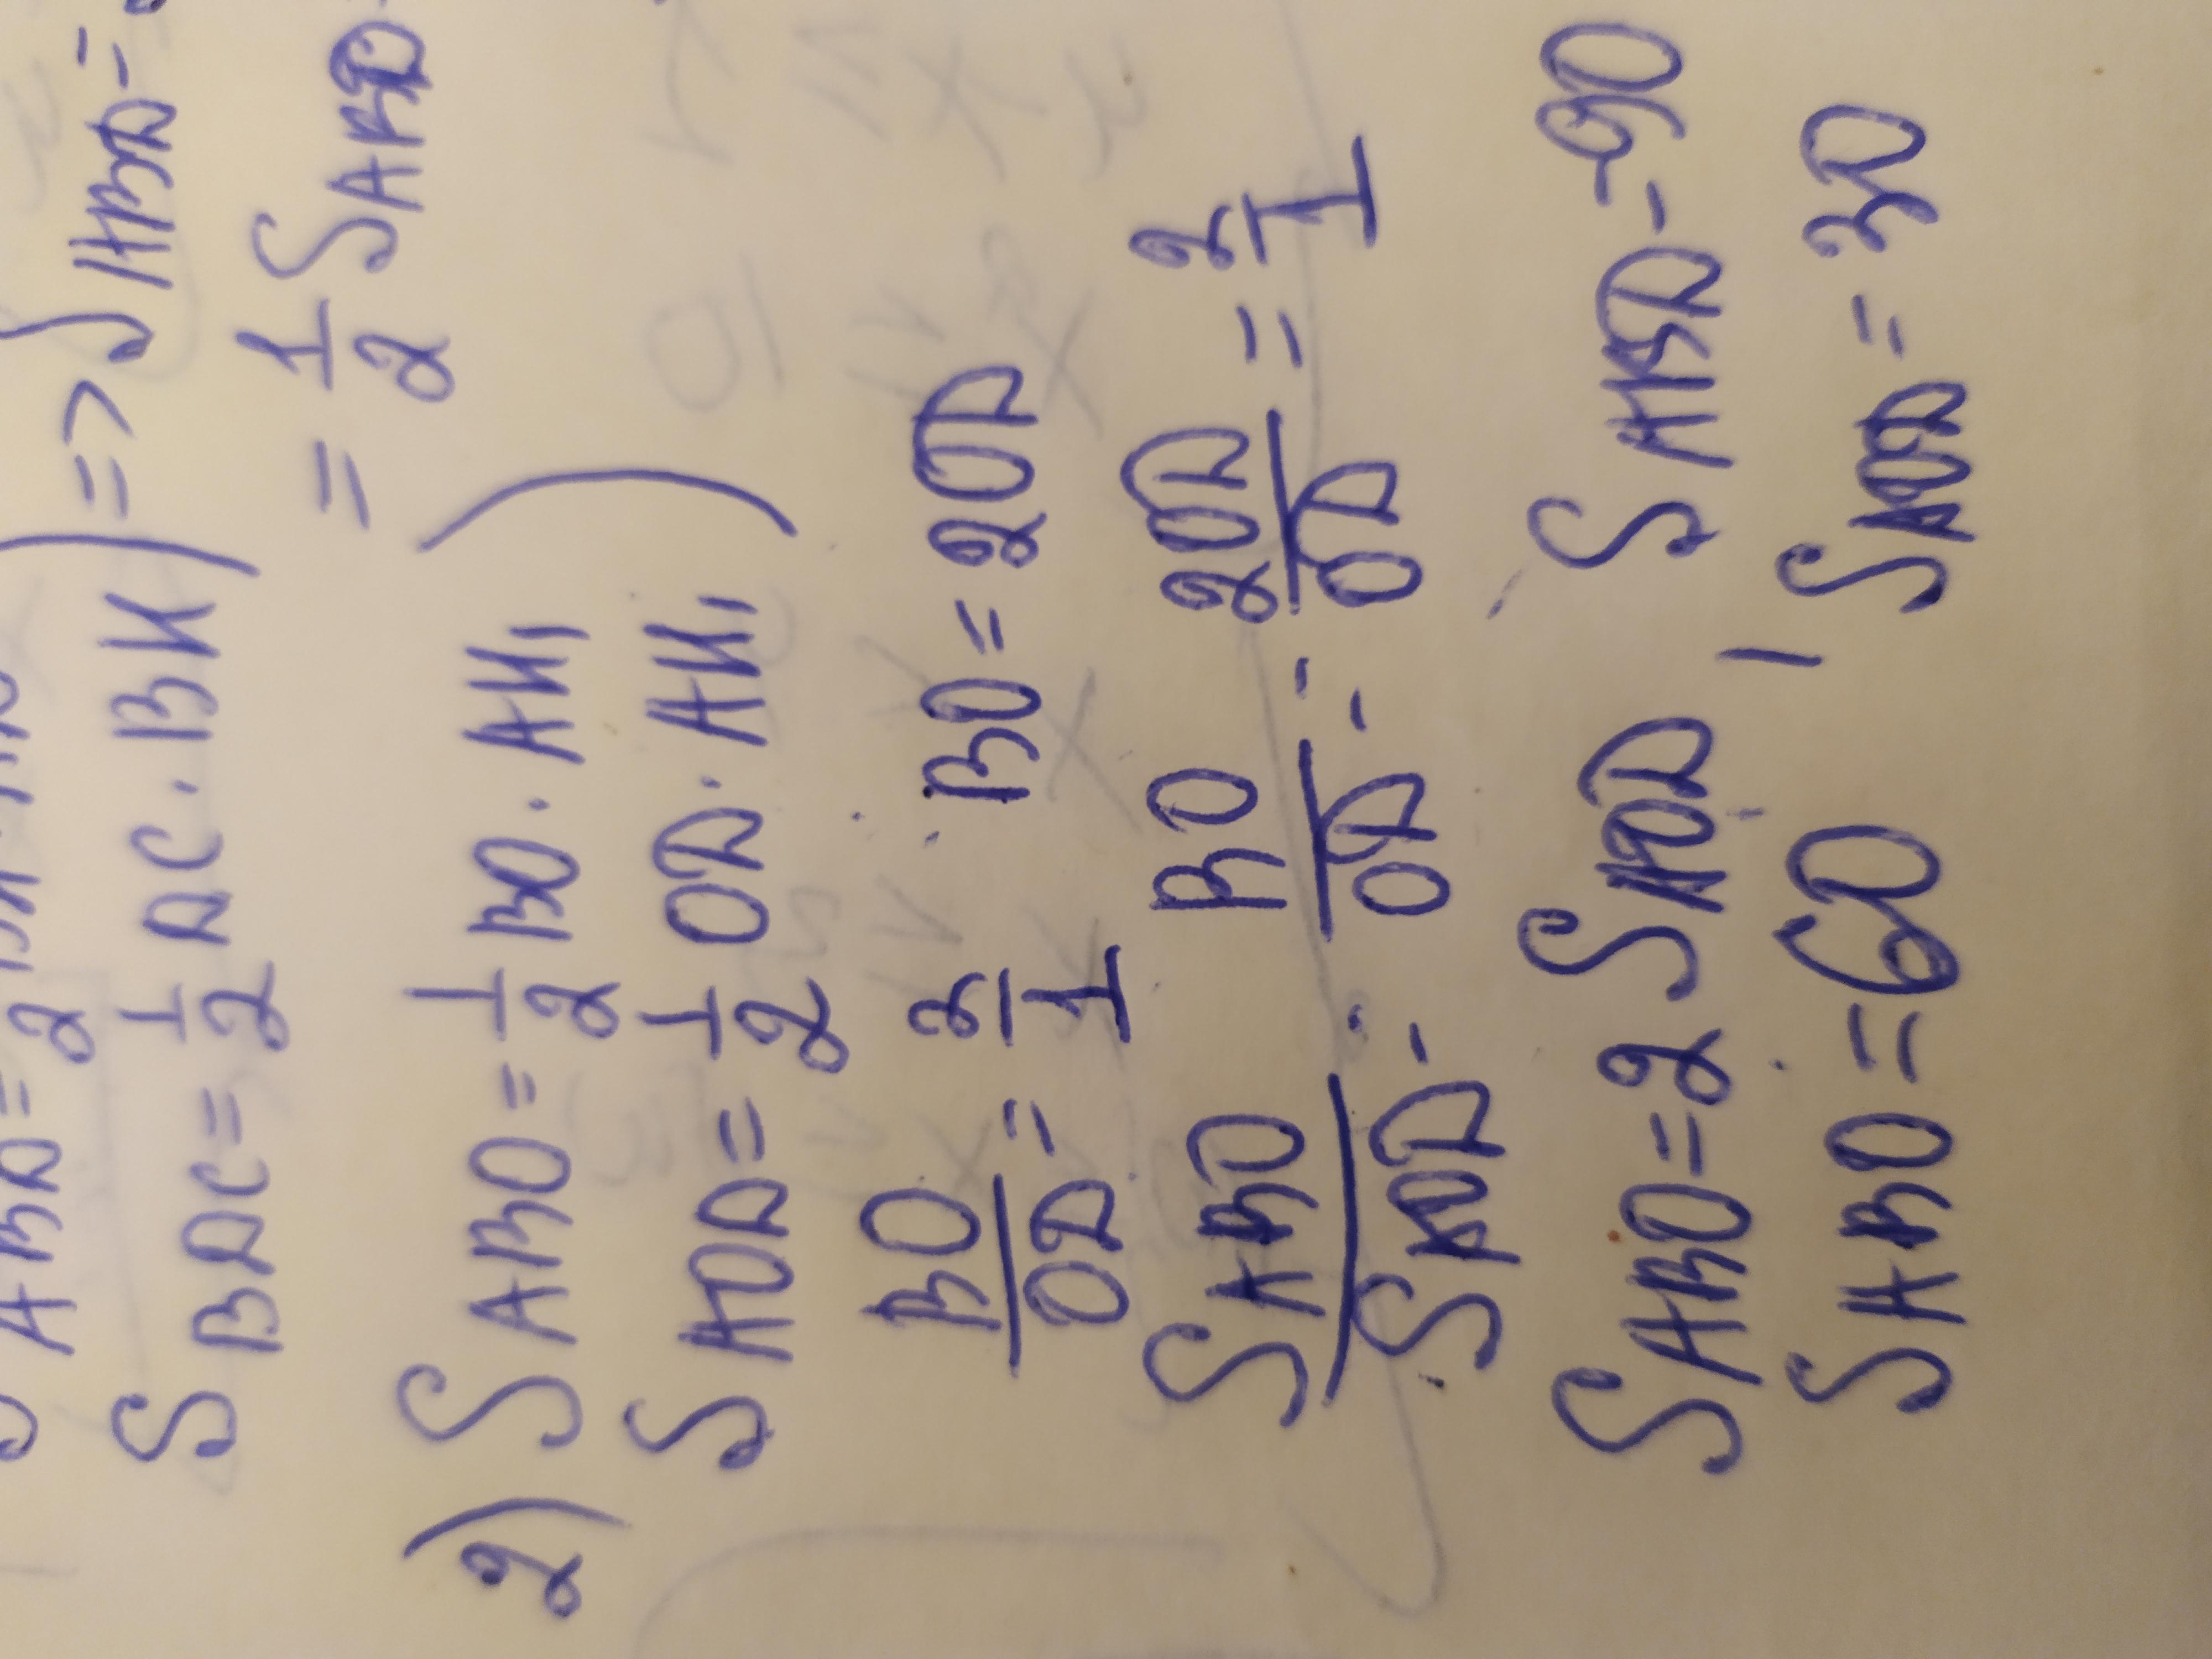 S ABD = 1/2
) => S ABD =
S BDC = 1/2 DC · BH
= 1/2 S ABD
2) S ABO = 1/2 BO · AH₁ )
S AOD = 1/2 OD · AH₁
BO/OD = 2/1 BO = 2OD
S ABO / S AOD = BO/OD = 2OD/OD = 2/1
S ABO = 2 S AOD , S ABD = 90
S ABO = 60 S AOD = 30